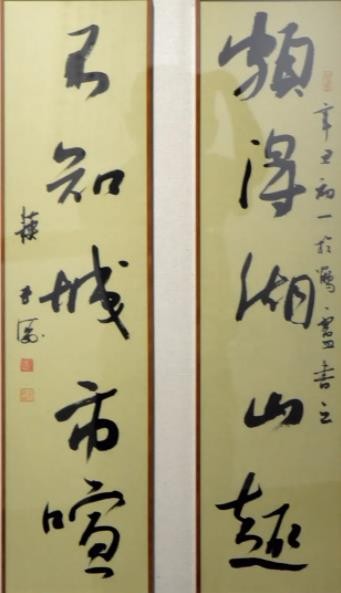 頗得湖山趣
辛丑初一於書之
不知城市喧